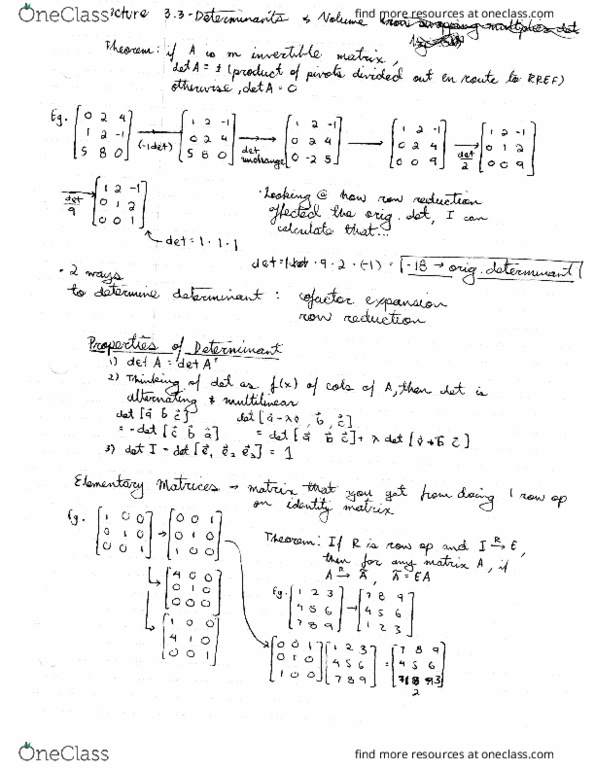 OneClass
find more resources at oneclass.com
Lecture 3.3 - Determinants & Volume
Theorem: if A is m invertible matrix,
det A = ± (product of pivots divided out en route to RREF)
otherwise, det A = 0
Eg. [0 2 4; 1 2 -1; 5 8 0] (-1det) → [1 2 -1; 0 2 4; 5 8 0] det unchanged → [1 2 -1; 0 2 4; 0 -2 5] → [1 2 -1; 0 2 4; 0 0 9] det/2 → [1 2 -1; 0 1 2; 0 0 9]
det/9 → [1 2 -1; 0 1 2; 0 0 1]
det = 1·1·1
·Looking @ how row reduction
affected the orig. det, I can
calculate that...
det = 9·2·(-1) = -18 → orig. determinant
· 2 ways
to determine determinant : cofactor expansion
row reduction
Properties of Determinant
1) det A = det Aᵀ
2) Thinking of det as f(x) of cols of A, then det is
alternating & multilinear
det [a⃗ b⃗ c⃗]
= -det [c⃗ b⃗ a⃗]
= det [a⃗ b⃗ c⃗] + λ det
3) det I = det [e⃗₁ e⃗₂ e⃗₃] = 1
Elementary Matrices → matrix that you get from doing 1 row op
on identity matrix
Eg. [1 0 0; 0 1 0; 0 0 1] → [0 0 1; 0 1 0; 1 0 0]
↳ [4 0 0; 0 1 0; 0 0 0]
↳ [1 0 0; 4 1 0; 0 0 1]
Theorem: If R is row op and I →ᴿ E,
then for any matrix A, if
A →ᴿ Ã, Ã = EA
Eg. [1 2 3; 4 5 6; 7 8 9] → [7 8 9; 4 5 6; 1 2 3]
[0 0 1; 0 1 0; 1 0 0] [1 2 3; 4 5 6; 7 8 9] = [7 8 9; 4 5 6; 1 2 3]
OneClass
find more resources at oneclass.com